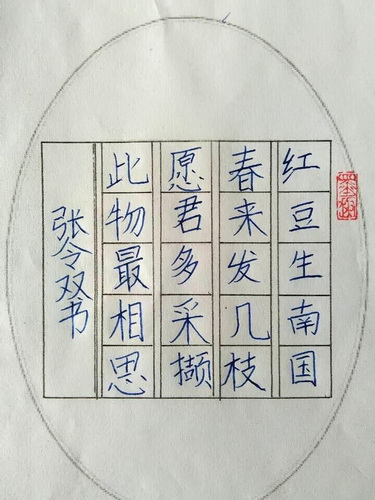 红豆生南国
春来发几枝
愿君多采撷
此物最相思
张令双书